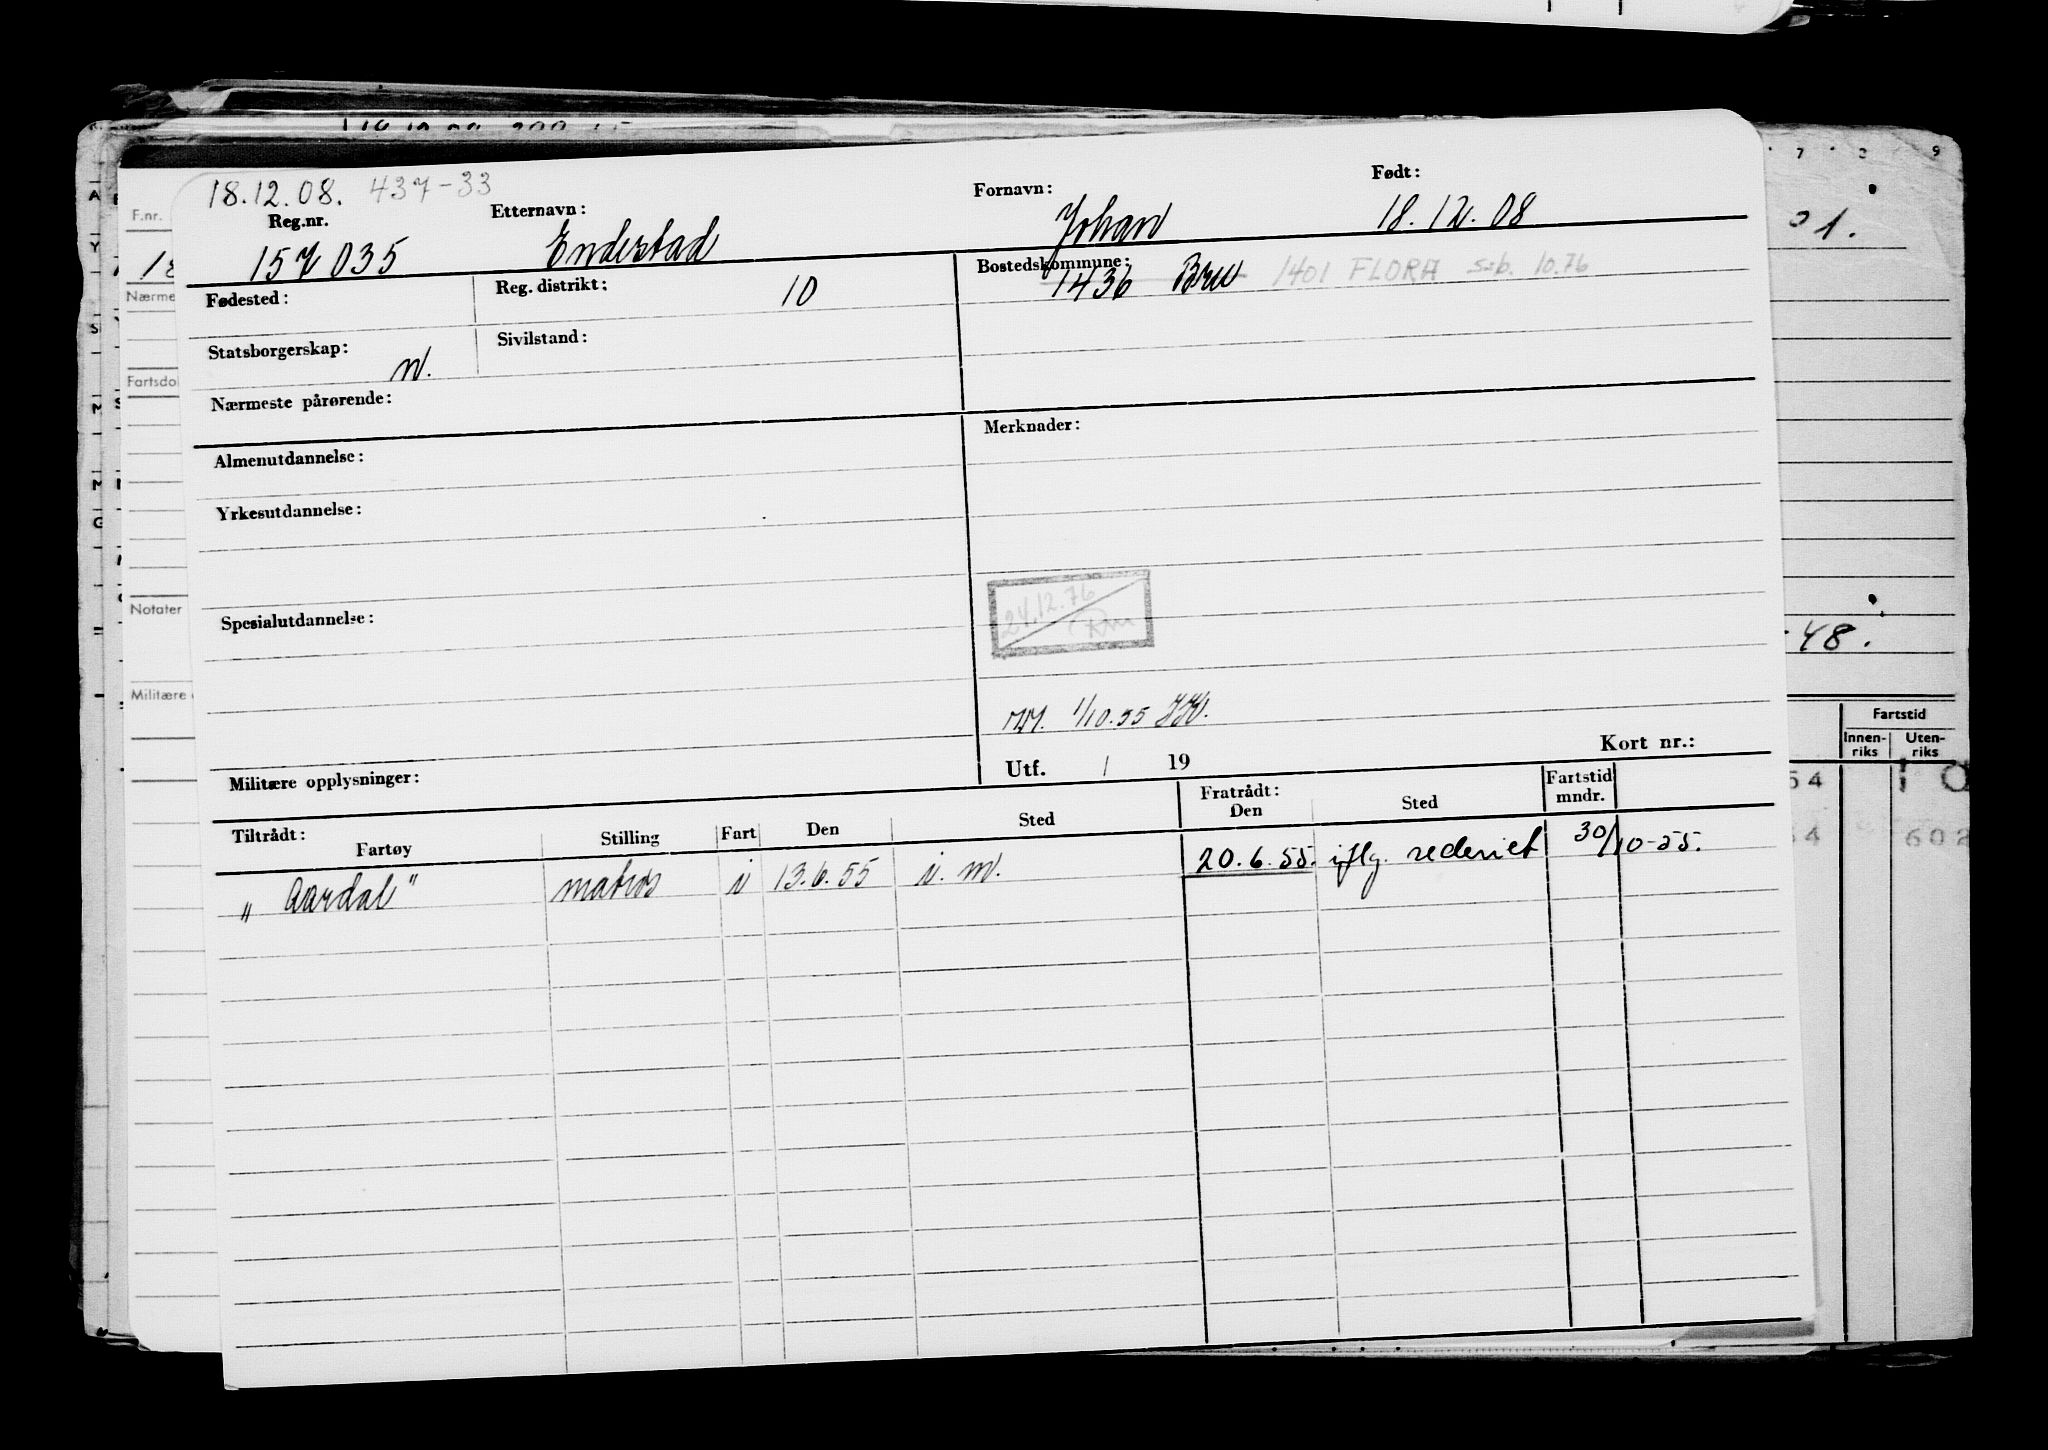 18.12.08. 437-33
Reg.nr. Etternavn: Fornavn: Født:
157035 Endestad Johan 18.12.08
Fødested: Reg. distrikt: 10 Bostedskommune: 1436 Bru 1401 FLORA s.b. 10.76
Statsborgerskap: N. Sivilstand:
Nærmeste pårørende:
Almenutdannelse: Merknader:
Yrkesutdannelse:
24.12.76
Spesialutdannelse:
1/10.55
Militære opplysninger: Utf. / 19 Kort nr.:
Tiltrådt: Fratrådt: Fartstid
Fartøy Stilling Fart Den Sted Den Sted mndr.
"Aardal" matros i 13.6.55 i. m. 20.6.55. iflg. rederiet 30/10-55.
F.nr.
Nærme
Fartsdo
Notater
Militære
7 9
-48.
Fartstid
Innen-riks Uten-riks
54
602